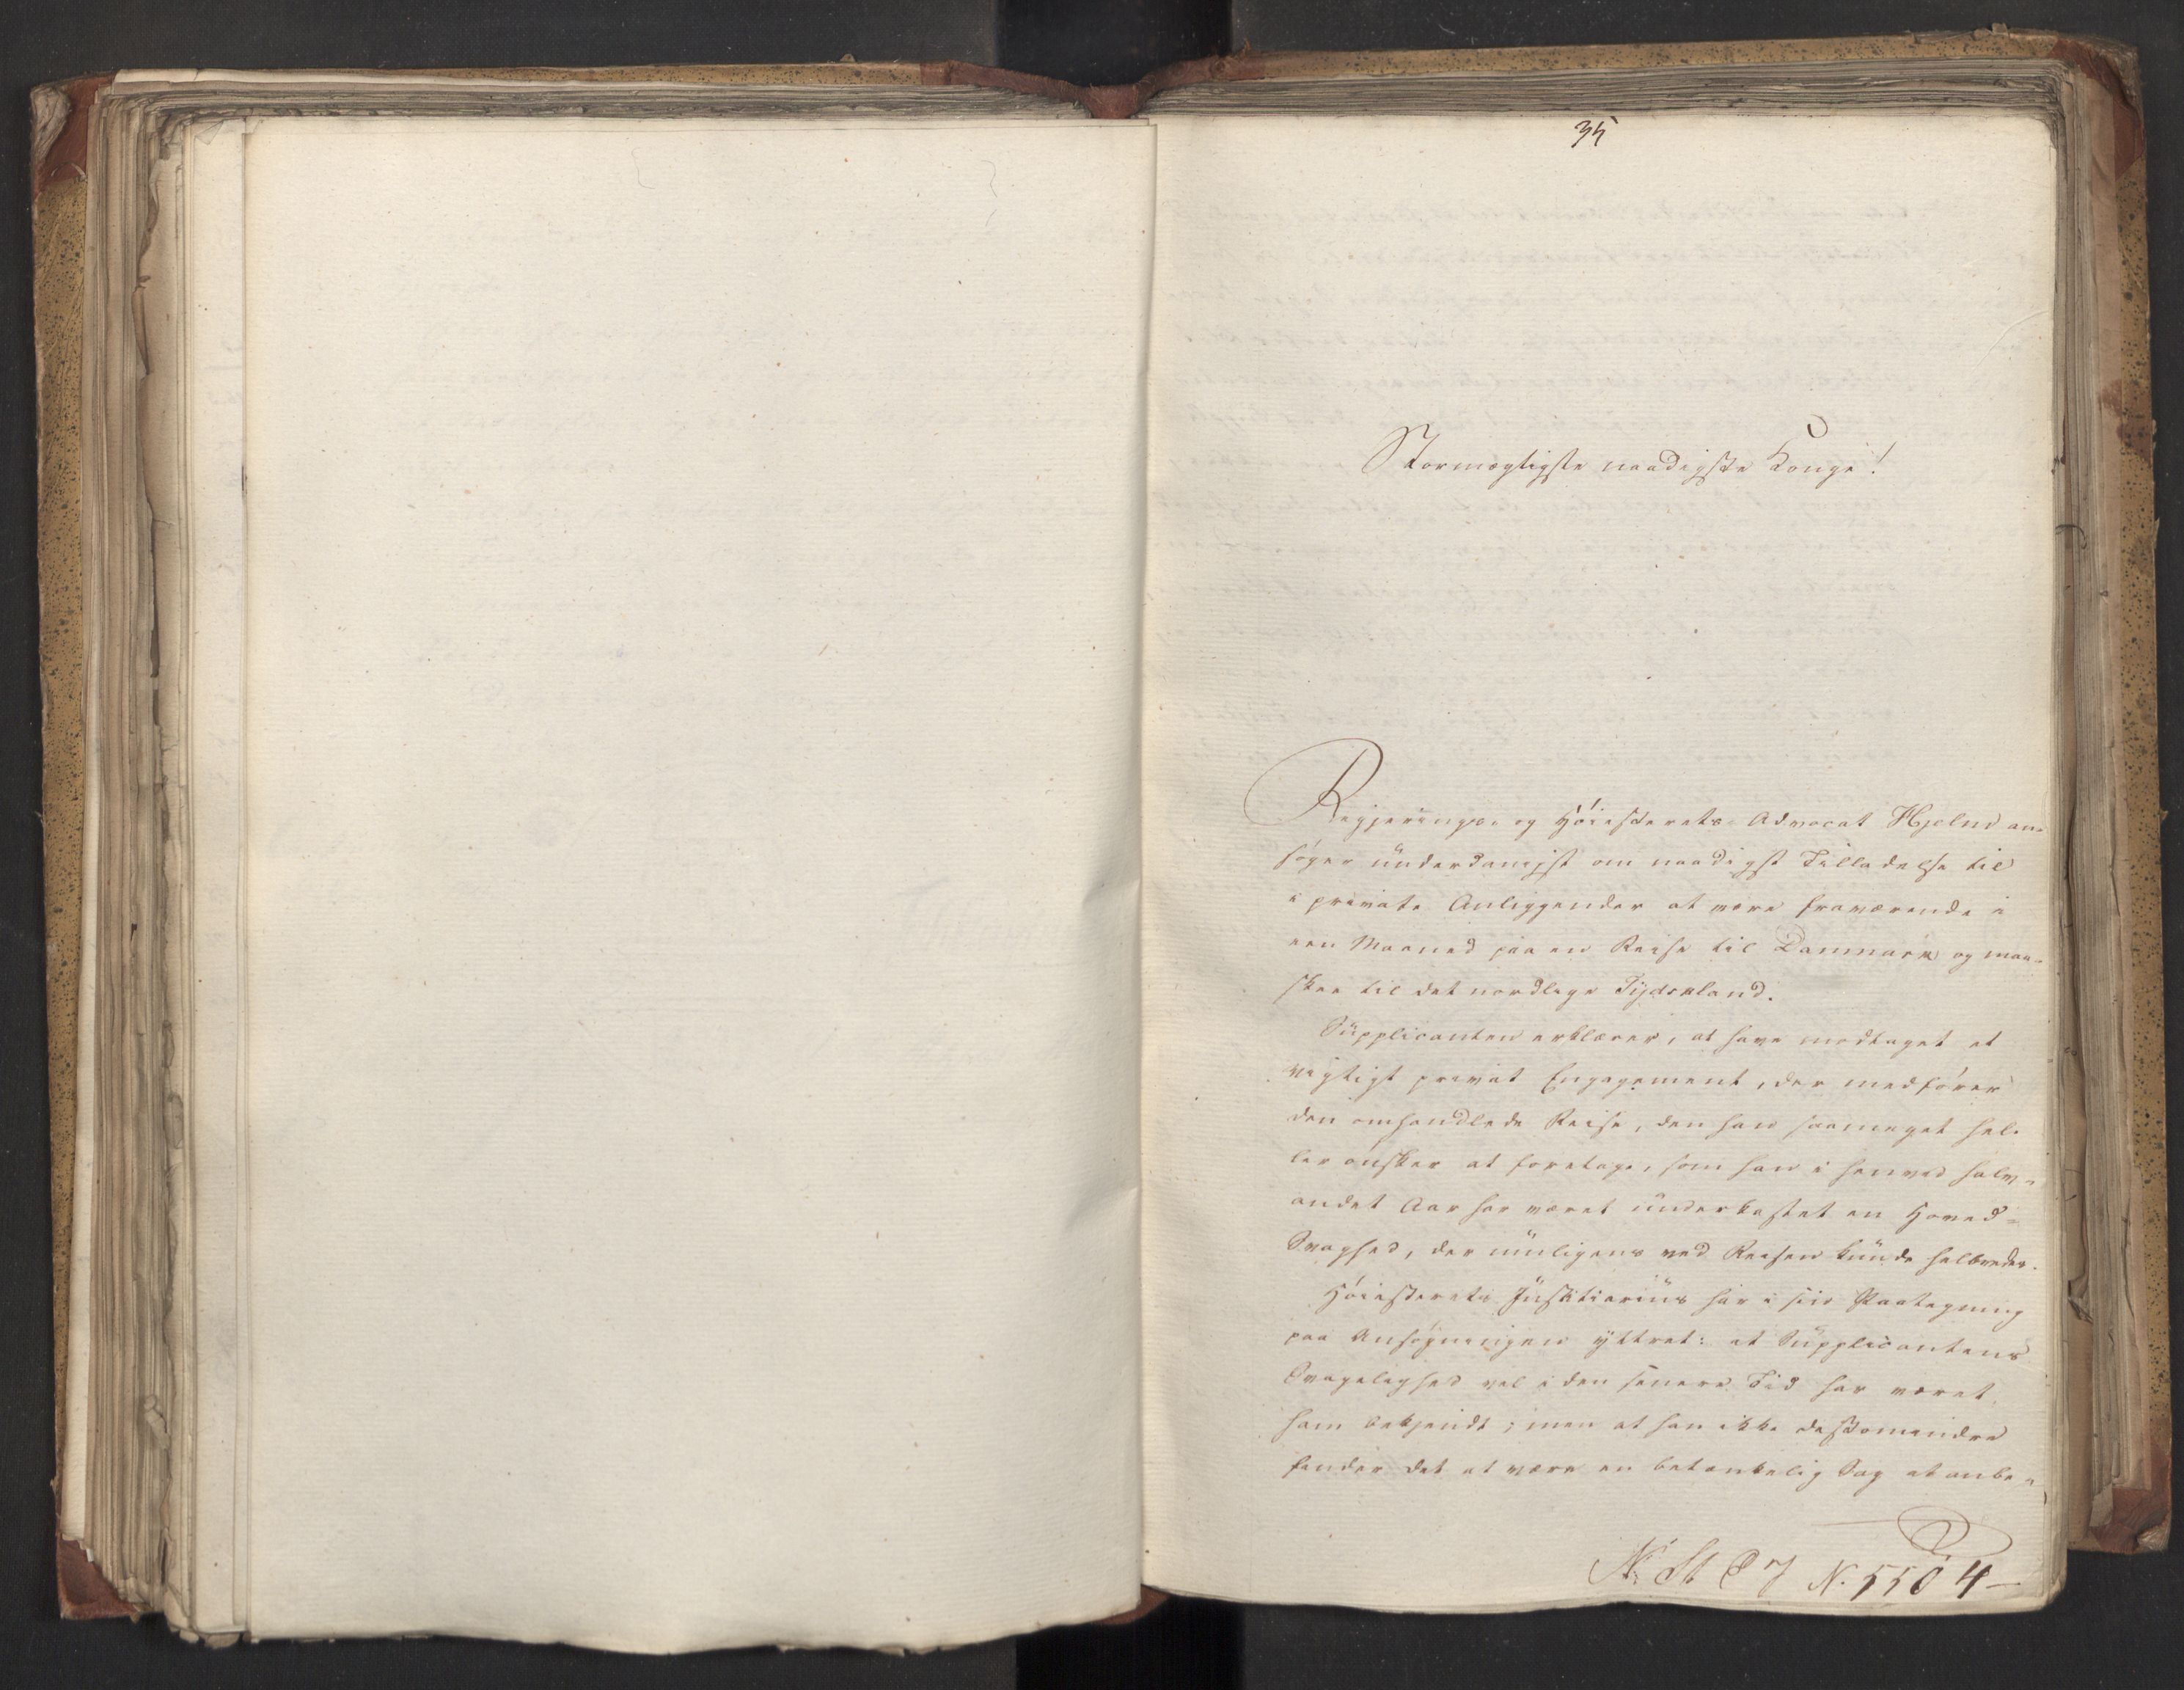 35
Stormægtigste naadigste Konge!
Regjerings- og Höiesterets-Advocat Hjelm an-
söger underdanigst om naadigst Tilladelse til
i private Anliggender at være fraværende i
een Maaned paa en Reise til Danmark og maa-
skee til det nordlige Tydskland.
Supplicanten erklærer, at have modtaget et
vigtigt privat Engagement, der medförer
den omhandlede Reise, den han saameget hel-
ler önsker at foretage, som han i henved halv-
andet Aar har været underkastet en Hoved-
Svaghed, der muligens ved Reisen kunde helbredes.
Höiesterets Justitiarius har i sin Paategning
paa Ansögningen yttret: at Supplicantens
Svagelighed vel i den senere Tid har været
ham bekjendt; men at han ikke destomindre
finder det at være en betænkelig Sag at anbe-
N. St. C J N. 5504